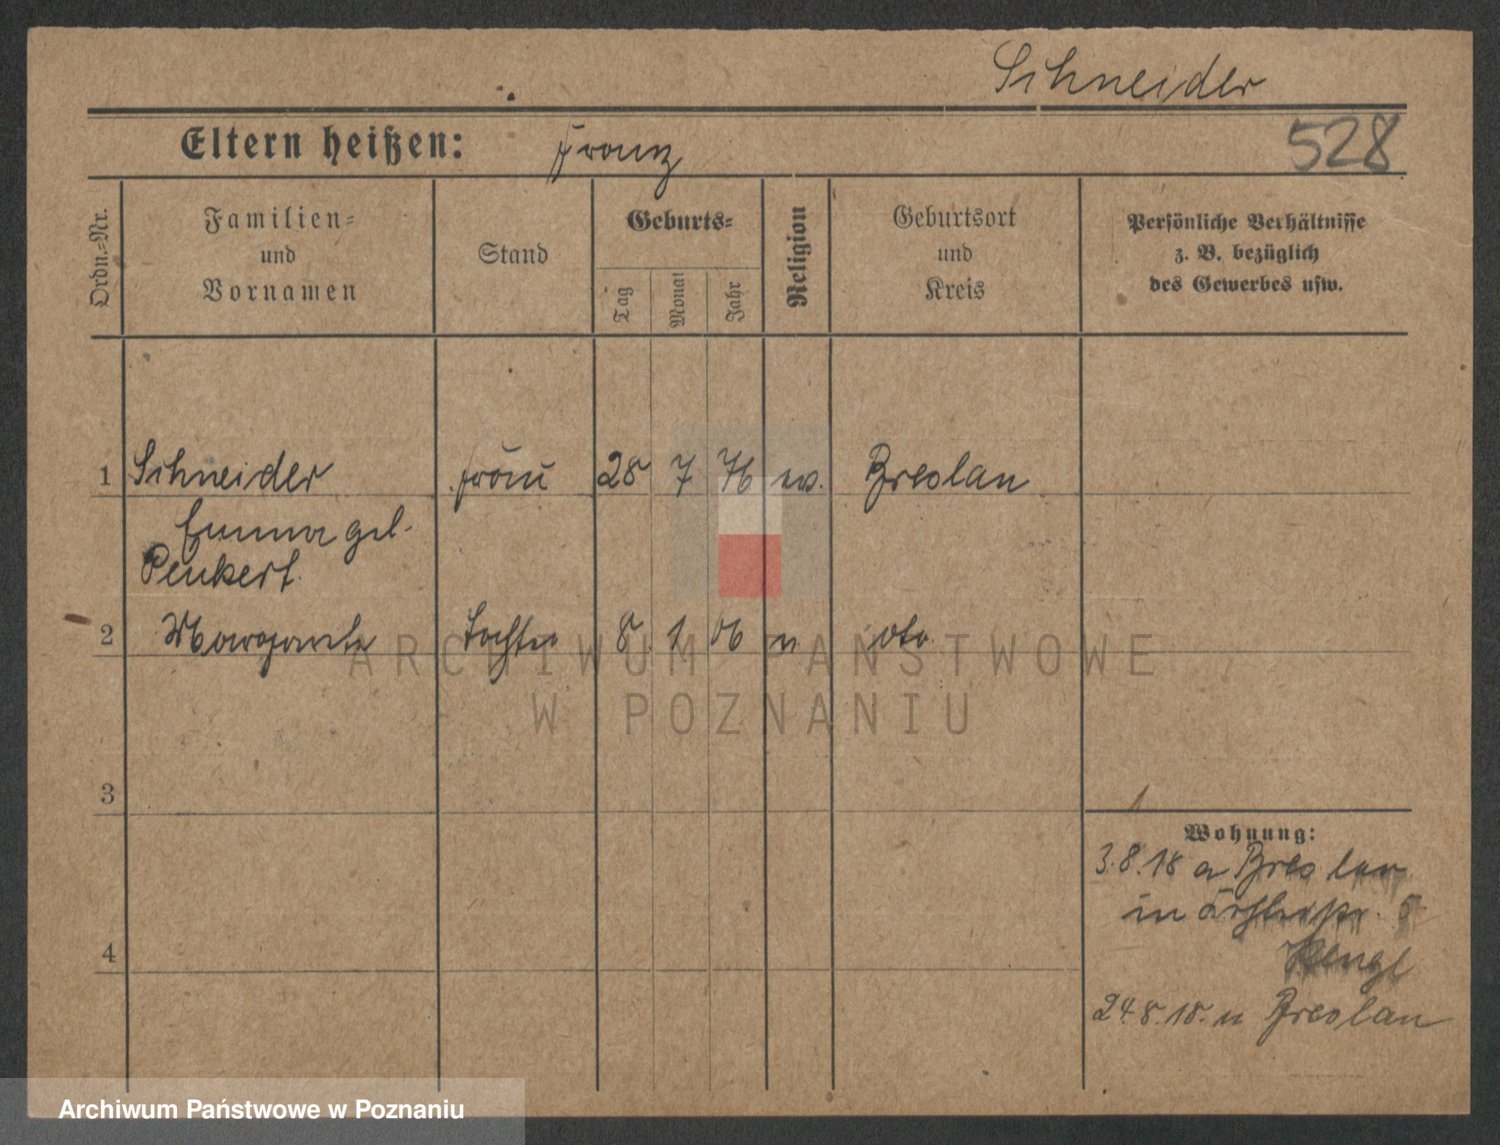 Schneider
Eltern heißen: Franz
528
Ordn.-Nr.
Familien-
und
Vornamen
Stand
Geburts-
Tag
Monat
Jahr
Religion
Geburtsort
und
Kreis
Persönliche Verhältnisse
z. B. bezüglich
des Gewerbes usw.
1 Schneider Frau 28 7 76 ev. Breslau
Emma geb.
Penkert
2 Margarete Tochter 8 1 06 " dto.
3
Wohnung:
3.8.18 a Breslau
in 5
4
24.8.18. n Breslau
ARCHIWUM PAŃSTWOWE
W POZNANIU
Archiwum Państwowe w Poznaniu